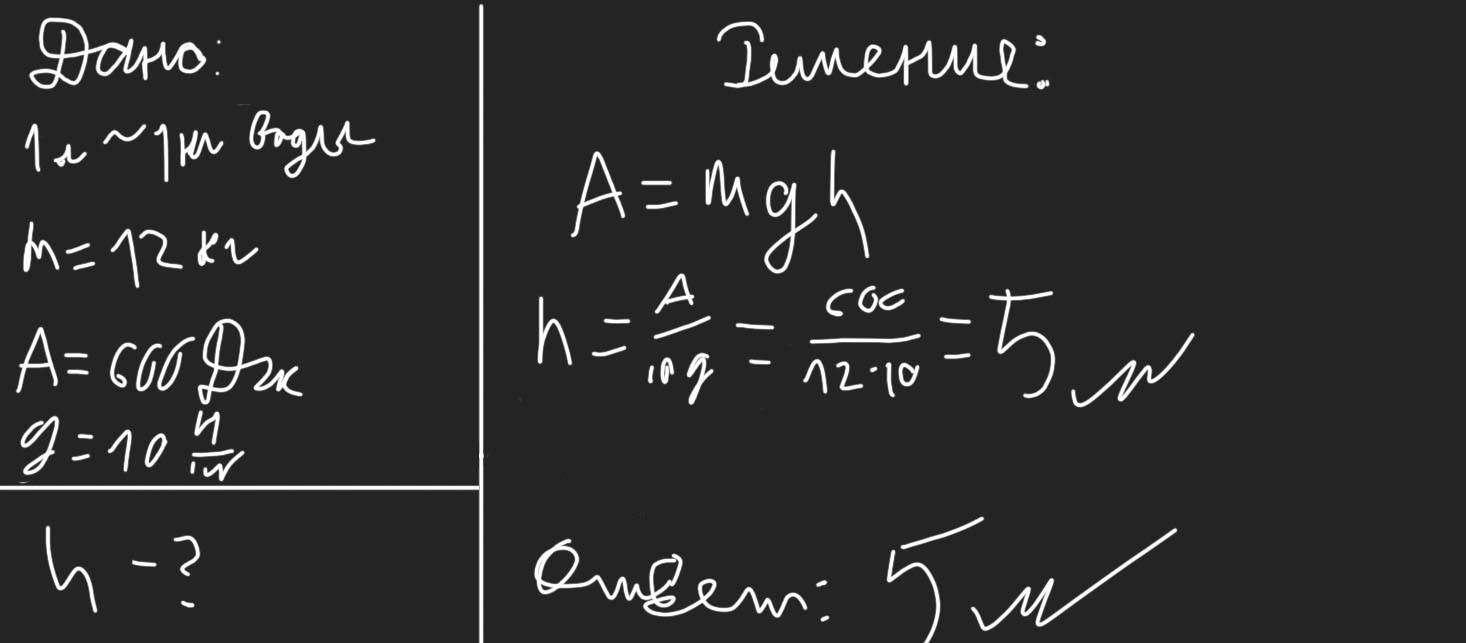 Дано:
1 л ~ 1 кг воды
m = 12 кг
A = 600 Дж
g = 10 Н/кг
h - ?
Решение:
A = mgh
h = A/mg = 600/12·10 = 5 м
Ответ: 5 м